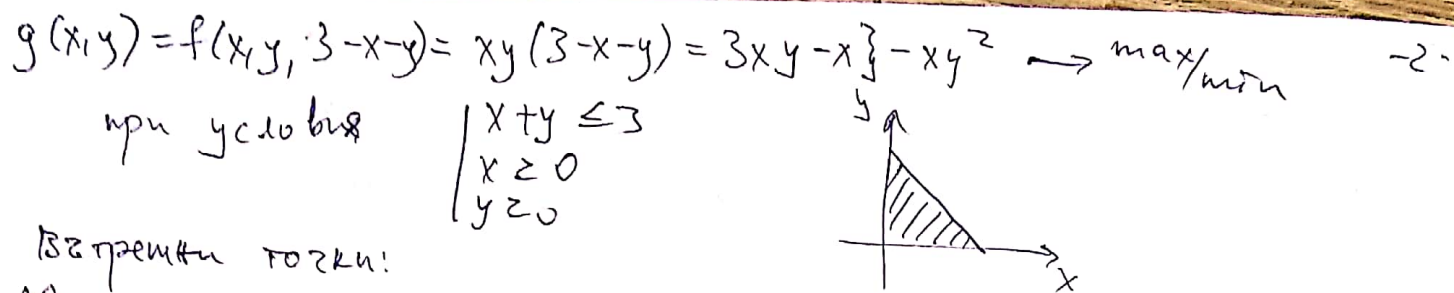 g(x,y) = f(x,y, 3-x-y) = xy(3-x-y) = 3xy - x²y - xy² → max/min
-2-
при условия
x + y ≤ 3
x ≥ 0
y ≥ 0
y
x
Вътрешни точки: